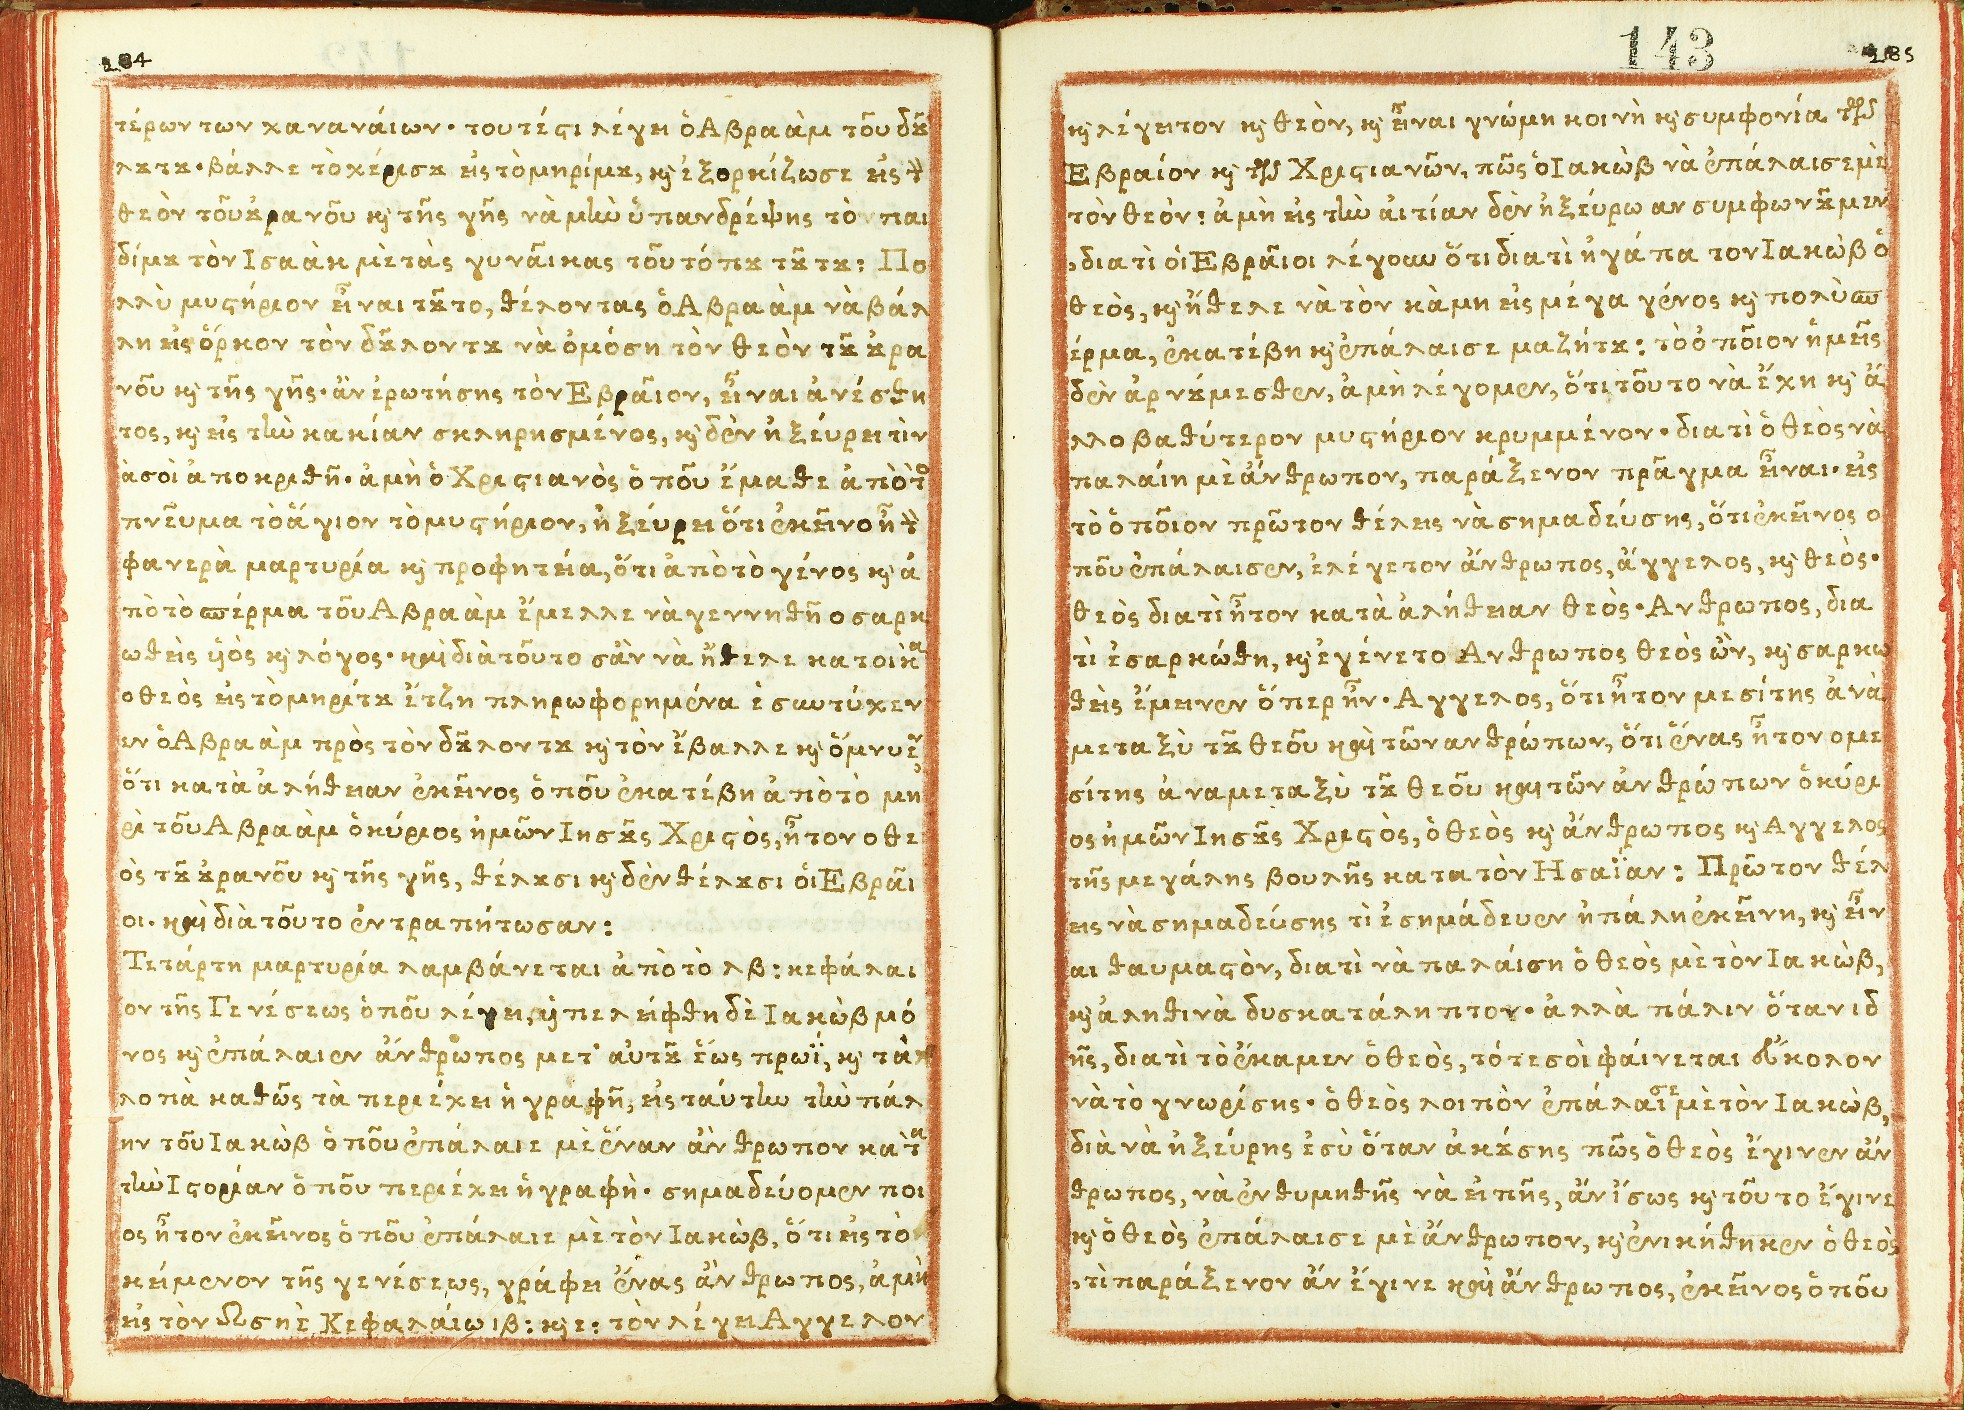 184
τέρων των χανανάιων· τουτέςι λέγει ὁ Αβραὰμ τοῦ δȣ͂
λȣτȣ· βάλλε τὸ χέρισȣ εἰς τὸ μηρίμȣ, κ̀ ἐξορκίζωσε εἰς τ
θεὸν τοῦ ȣ̓ρανοῦ κ̀ τῆς γῆς νὰ μὴν ὑπανδρέψης τὸν παι
δίμȣ τὸν Ισαὰκ μὲ τὰς γυνᾶικας τοῦ τόπȣ τȣ́τȣ: Πο
λλὺ μυςήριον εἶναι τȣ͂το, θέλοντας ὁ Αβραὰμ νὰ βάλ
λη εἰς ὅρκον τὸν δȣ͂λοντȣ νὰ ὀμόση τὸν θεὸν τȣ͂ ȣ̓ρα
νοῦ κ̀ τῆς γῆς· ἂν ἐρωτήσης τὸν Εβρᾶιον, εἶναι ἀνέσθη
τος, κ̀ εἰς τὴν κακίαν σκληρησμένος, κ̀ δὲν ἠξέυρει τὶν
ὰ σοὶ ἀποκριθῆ· ἀμὴ ὁ Χριςιανὸς ὁποῦ ἔμαθε ἀπὸ τὸ
πνεῦμα τὸ ἅγιον τὸ μυςήριον, ἠξέυρει ὅτι ἐκεῖνο ἦτ
φανερὰ μαρτυρία κ̀ προφητεία, ὅτι ἀπὸ τὸ γένος κ̀ ἀ
πὸ τὸ σπέρμα τοῦ Αβραὰμ ἔμελλε νὰ γεννηθῆ ο σαρκ
ωθεὶς ὑὸς κ̀ λόγος· καὶ διὰ τοῦτο σὰν νὰ ἤθελε κατοικᾶ
ο θεὸς εἰς τὸ μηρίτȣ ἔτζη πληρωφορημένα ἐσυντύχεν
εν ὁ Αβραὰμ πρὸς τὸν δȣ͂λοντȣ κ̀ τὸν ἔβαλλε κ̀ ὅμνυε
ὅτι κατὰ ἀλήθειαν ἐκεῖνος ὁποῦ ἐκατέβη ἀπὸ τὸ μη
ρὶ τοῦ Αβραὰμ ὁ κύριος ἡμῶν Ιησȣ͂ς Χριςὸς, ἦτον ο θε
ὸς τȣ͂ ȣ̓ρανοῦ κ̀ τῆς γῆς, θέλȣσι κ̀ δὲν θέλȣσι ὁι Εβρᾶι
οι· καὶ διὰ τοῦτο ἐντραπήτωσαν:
Τετάρτη μαρτυρία λαμβάνεται ἀπὸ τὸ λβ: κεφάλαι
ον τῆς Γενέσεως ὁποῦ λέγει, ὑπελείφθη δὲ Ιακὼβ μό
νος κ̀ ἐπάλαιεν ἄνθρωπος μετ' αὐτȣ͂ ἕως πρωΐ, κ̀ τὰ
λοπὰ καθῶς τὰ περιέχει ἡ γραφῆ, εἰς ταύτην τὴν πάλ
ην τοῦ Ιακὼβ ὁποῦ ἐπάλαιε μὲ ἕναν ἄνθρωπον κατὰ
τὴν Ιςορίαν ὁποῦ περιέχει ἡ γραφὴ· σημαδεύομεν ποι
ος ἦτον ἐκεῖνος ὁποῦ ἐπάλαιε μὲ τὸν Ιακὼβ, ὅτι εἰς τὸ
κείμενον τῆς γενέσεως, γράφει ἕνας ἄνθρωπος, ἀμὴ
εἰς τὸν Ωσηὲ Κεφαλάιω ιβ: κ̀ ε: τὸν λέγει Αγγελον
143
185
κ̀ λέγειτον κ̀ θεὸν, κ̀ εἶναι γνώμη κοινὴ κ̀ συμφονία τῶν
Εβραίον κ̀ τῶν Χριςιανῶν, πῶς ὁ Ιακὼβ νὰ ἐπάλαισε μὲ
τὸν θεὸν: ἀμὴ εἰς τὴν ἀιτίαν δὲν ἠξέυρω αν συμφωνȣ͂μεν
, διατὶ ὁι Εβρᾶιοι λέγουν ὅτι διατὶ ἠγάπα τον Ιακὼβ ὁ
θεὸς, κ̀ ἤθελε νὰ τὸν κάμη εἰς μέγα γένος κ̀ πολὺ σπ
έρμα, ἐκατέβη κ̀ ἐπάλαισε μαζήτȣ: τὸ ὁποῖον ἡμεῖς
δὲν ἀρνȣ́μεσθεν, ἀμὴ λέγομεν, ὅτι τοῦτο νὰ ἔχη κ̀ ἄ
λλο βαθύτερον μυςήριον κρυμμένον· διατὶ ὁ θεὸς νὰ
παλαίη μὲ ἄνθρωπον, παράξενον πρᾶγμα εἶναι· εἰς
τὸ ὁποῖον πρῶτον θέλεις νὰ σημαδεύσης, ὅτι ἐκεῖνος ο
ποῦ ἐπάλαισεν, ἐλέγετον ἄνθρωπος, ἄγγελος, κ̀ θεὸς·
θεὸς διατὶ ἦτον κατὰ ἀλήθειαν θεὸς· Ανθρωπος, δια
τὶ ἐσαρκώθη, κ̀ ἐγένετο Ανθρωπος θεὸς ὢν, κ̀ σαρκω
θεὶς ἔμεινεν ὅπερ ἦν· Αγγελος, ὅτι ἦτον μεσίτης ἀνὰ
μεταξὺ τȣ͂ θεοῦ καὶ τῶν ανθρώπων, ὅτι ἕνας ἦτον ο με
σίτης ἀναμεταξὺ τȣ͂ θεοῦ καὶ τῶν ἀνθρώπων ὁ κύρι
ος ἡμῶν Ιησȣ͂ς Χριςὸς, ὁ θεὸς κ̀ ἄνθρωπος κ̀ Αγγελος
τῆς μεγάλης βουλῆς κατα τὸν Ησαΐαν: Πρῶτον θέλ
εις νὰ σημαδεύσης τὶ ἐσημάδευεν ἡ πάλη ἐκείνη, κ̀ εἶν
αι θαυμαςὸν, διατὶ νὰ παλάιση ὁ θεὸς μὲ τὸν Ιακὼβ,
κ̀ ἀληθινὰ δυσκατάληπτον· ἀλλὰ πάλιν ὅταν ιδ
ῆς, διατὶ τὸ ἔκαμεν ὁ θεὸς, τότε σοὶ φάινεται ἔυκολον
νὰ τὸ γνωρίσης· ὁ θεὸς λοιπὸν ἐπάλαισε μὲ τὸν Ιακὼβ,
διὰ νὰ ἠξεύρης ἐσὺ ὅταν ἀκȣ́σης πῶς ὁ θεὸς ἔγινεν ἄν
θρωπος, νὰ ἐνθυμηθῆς νὰ εἰπῆς, ἂν ἴσως κ̀ τοῦτο ἔγινε
κ̀ ὁ θεὸς ἐπάλαισε μὲ ἄνθρωπον, κ̀ ἐνικήθηκεν ὁ θεὸς
, τὶ παράξενον ἂν ἔγινε καὶ ἄνθρωπος, ἐκεῖνος ὁποῦ